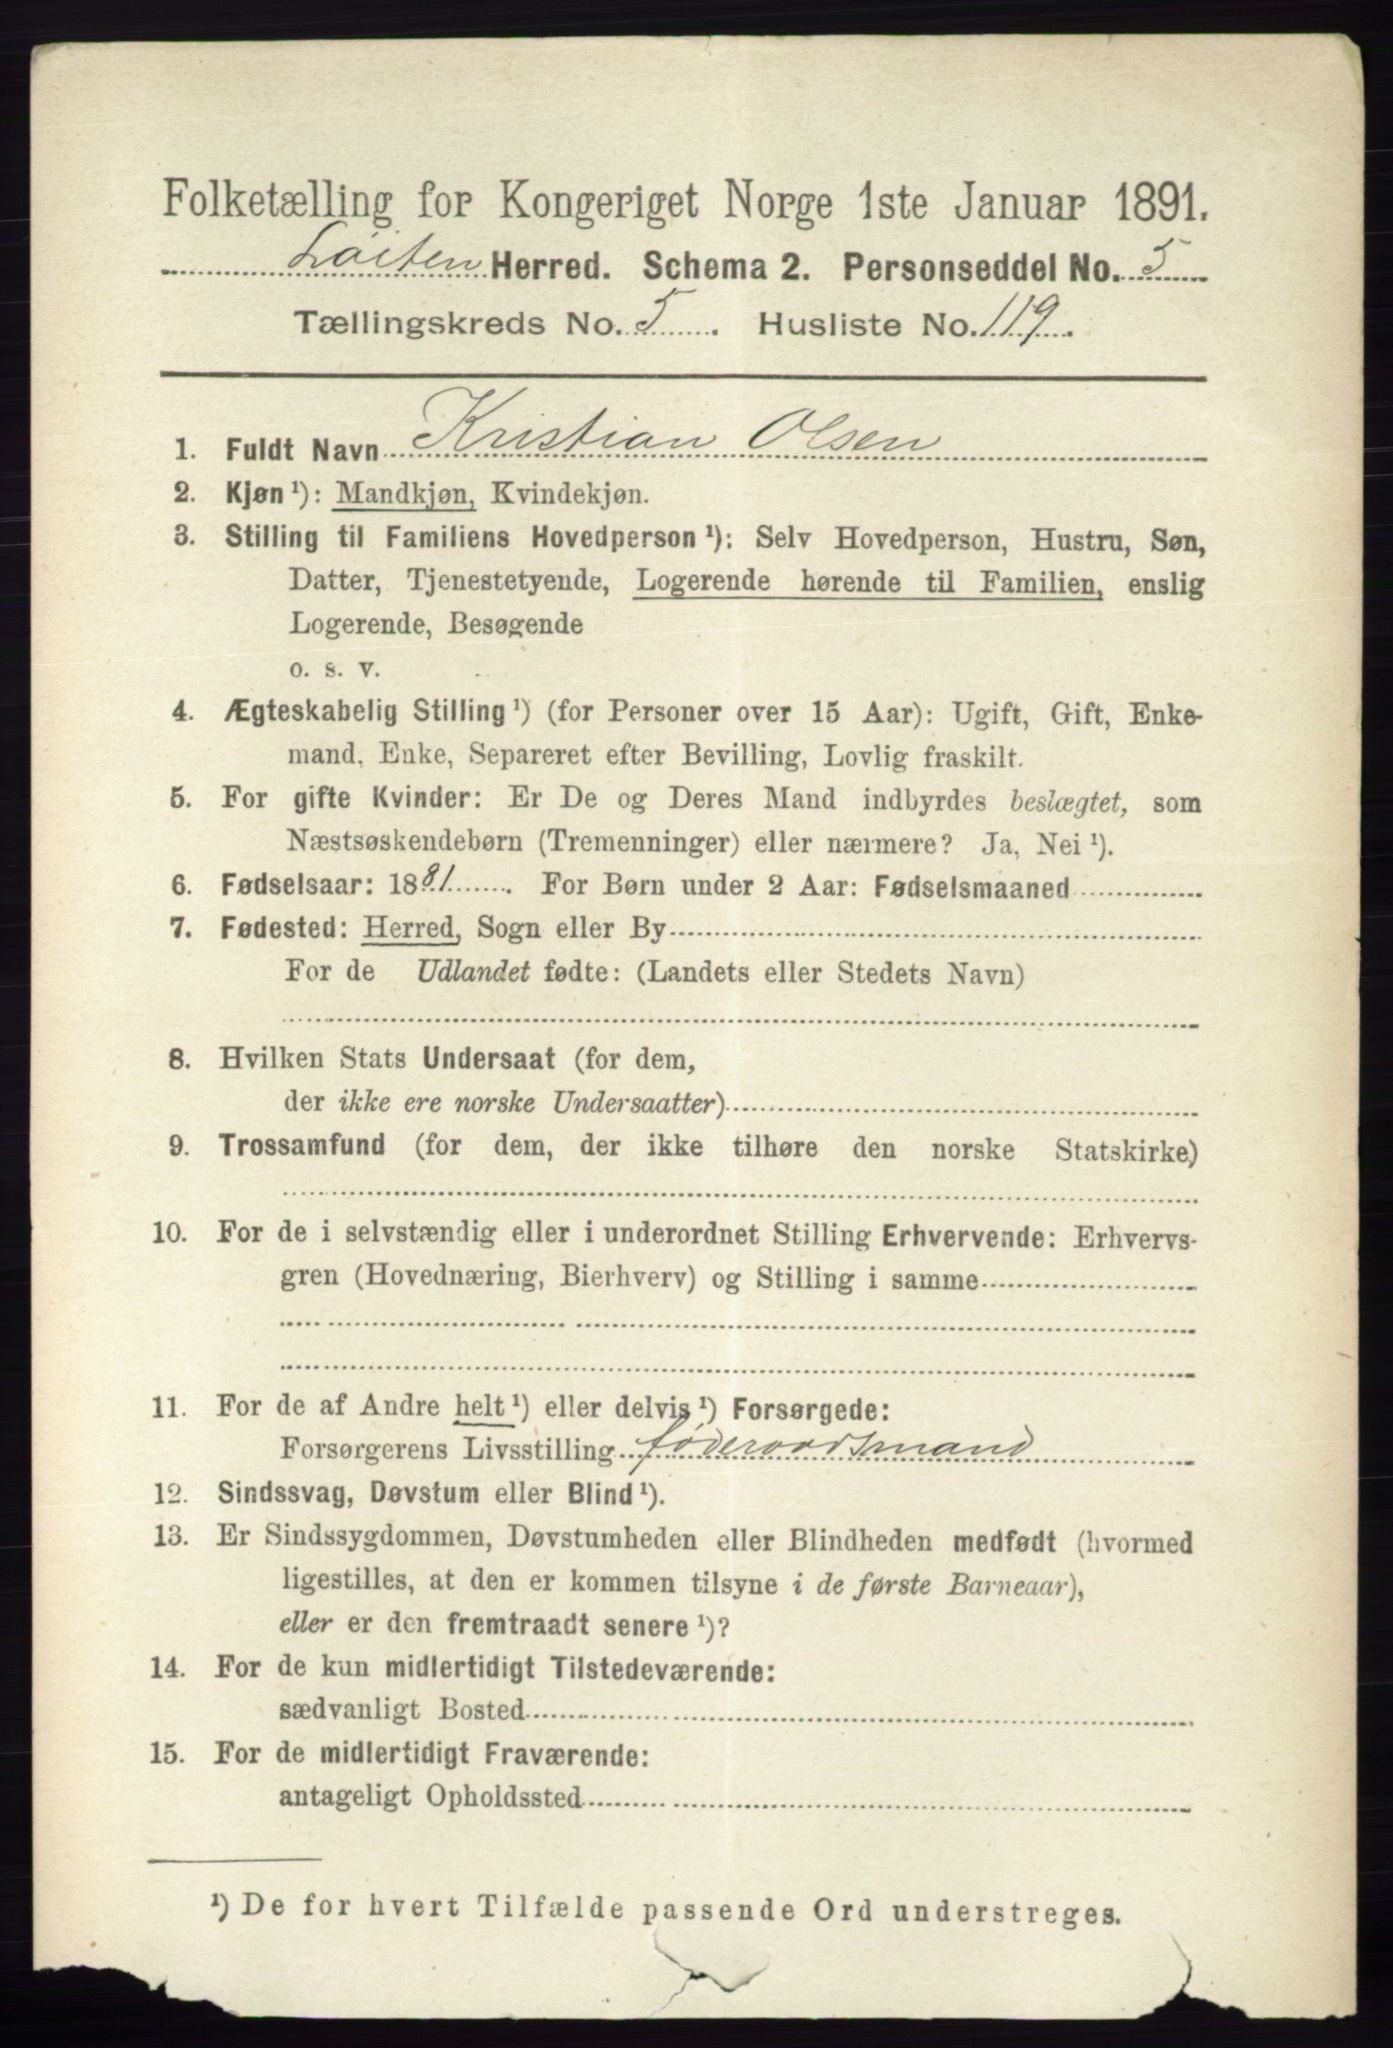 Folketælling for Kongeriget Norge 1ste Januar 1891.
Løiten Herred. Schema 2. Personseddel No. 5
Tællingskreds No. 5. Husliste No. 119.
1. Fuldt Navn Kristian Olsen
2. Kjøn ¹): Mandkjøn, Kvindekjøn.
3. Stilling til Familiens Hovedperson ¹): Selv Hovedperson, Hustru, Søn,
Datter, Tjenestetyende, Logerende hørende til Familien, enslig
Logerende, Besøgende
o. s. v.
4. Ægteskabelig Stilling ¹) (for Personer over 15 Aar): Ugift, Gift, Enke-
mand, Enke, Separeret efter Bevilling, Lovlig fraskilt.
5. For gifte Kvinder: Er De og Deres Mand indbyrdes beslægtet, som
Næstsøskendebørn (Tremenninger) eller nærmere? Ja, Nei ¹).
6. Fødselsaar: 1881. For Børn under 2 Aar: Fødselsmaaned
7. Fødested: Herred, Sogn eller By
For de Udlandet fødte: (Landets eller Stedets Navn)
8. Hvilken Stats Undersaat (for dem,
der ikke ere norske Undersaatter)
9. Trossamfund (for dem, der ikke tilhøre den norske Statskirke)
10. For de i selvstændig eller i underordnet Stilling Erhvervende: Erhvervs-
gren (Hovednæring, Bierhverv) og Stilling i samme
11. For de af Andre helt ¹) eller delvis ¹) Forsørgede:
Forsørgerens Livsstilling føderaadsmand
12. Sindssvag, Døvstum eller Blind ¹).
13. Er Sindssygdommen, Døvstumheden eller Blindheden medfødt (hvormed
ligestilles, at den er kommen tilsyne i de første Barneaar),
eller er den fremtraadt senere ¹)?
14. For de kun midlertidigt Tilstedeværende:
sædvanligt Bosted
15. For de midlertidigt Fraværende:
antageligt Opholdssted
¹) De for hvert Tilfælde passende Ord understreges.